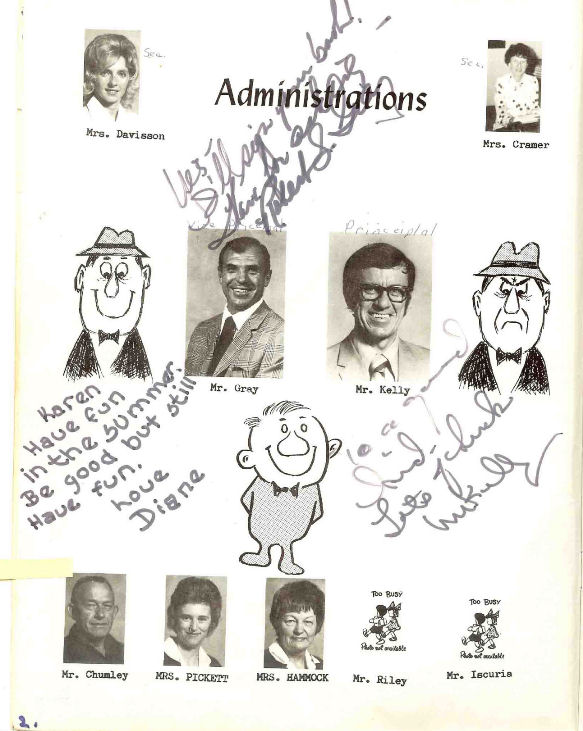 Sec.
Administrations
Sec.
Mrs. Davisson
Mrs. Cramer
Yes,
I'll sign your book!
Have
Robert J. Gray
Vice
Principlal
Mr. Gray
Mr. Kelly
Karen
Have fun
in the summer.
Be good but still
Have fun.
Love
Diane
To a good
kid.
Lots
luck
Mr Kelly
TOO BUSY
Photo not available
TOO BUSY
Photo not available
Mr. Chumley
MRS. PICKETT
MRS. HAMMOCK
Mr. Riley
Mr. Iscuria
2.